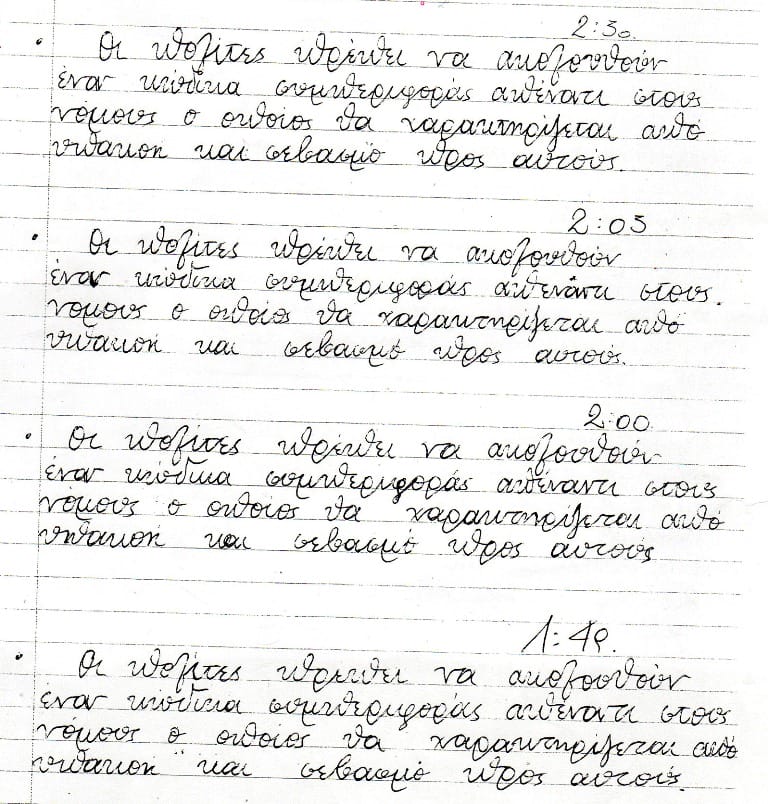 2:30.
• Οι πολίτες πρέπει να ακολουθούν
έναν κώδικα συμπεριφοράς απέναντι στους
νόμους ο οποίος θα χαρακτηρίζεται από
υπακοή και σεβασμό προς αυτούς.
2:05
• Οι πολίτες πρέπει να ακολουθούν
έναν κώδικα συμπεριφοράς απέναντι στους.
νόμους ο οποίος θα χαρακτηρίζεται από
υπακοή και σεβασμό προς αυτούς.
2:00
• Οι πολίτες πρέπει να ακολουθούν
έναν κώδικα συμπεριφοράς απέναντι στους
νόμους ο οποίος θα χαρακτηρίζεται από
υπακοή και σεβασμό προς αυτούς
1:49.
• Οι πολίτες πρέπει να ακολουθούν
έναν κώδικα συμπεριφοράς απέναντι στους
νόμους ο οποίος θα χαρακτηρίζεται από
υπακοή και σεβασμό προς αυτούς.